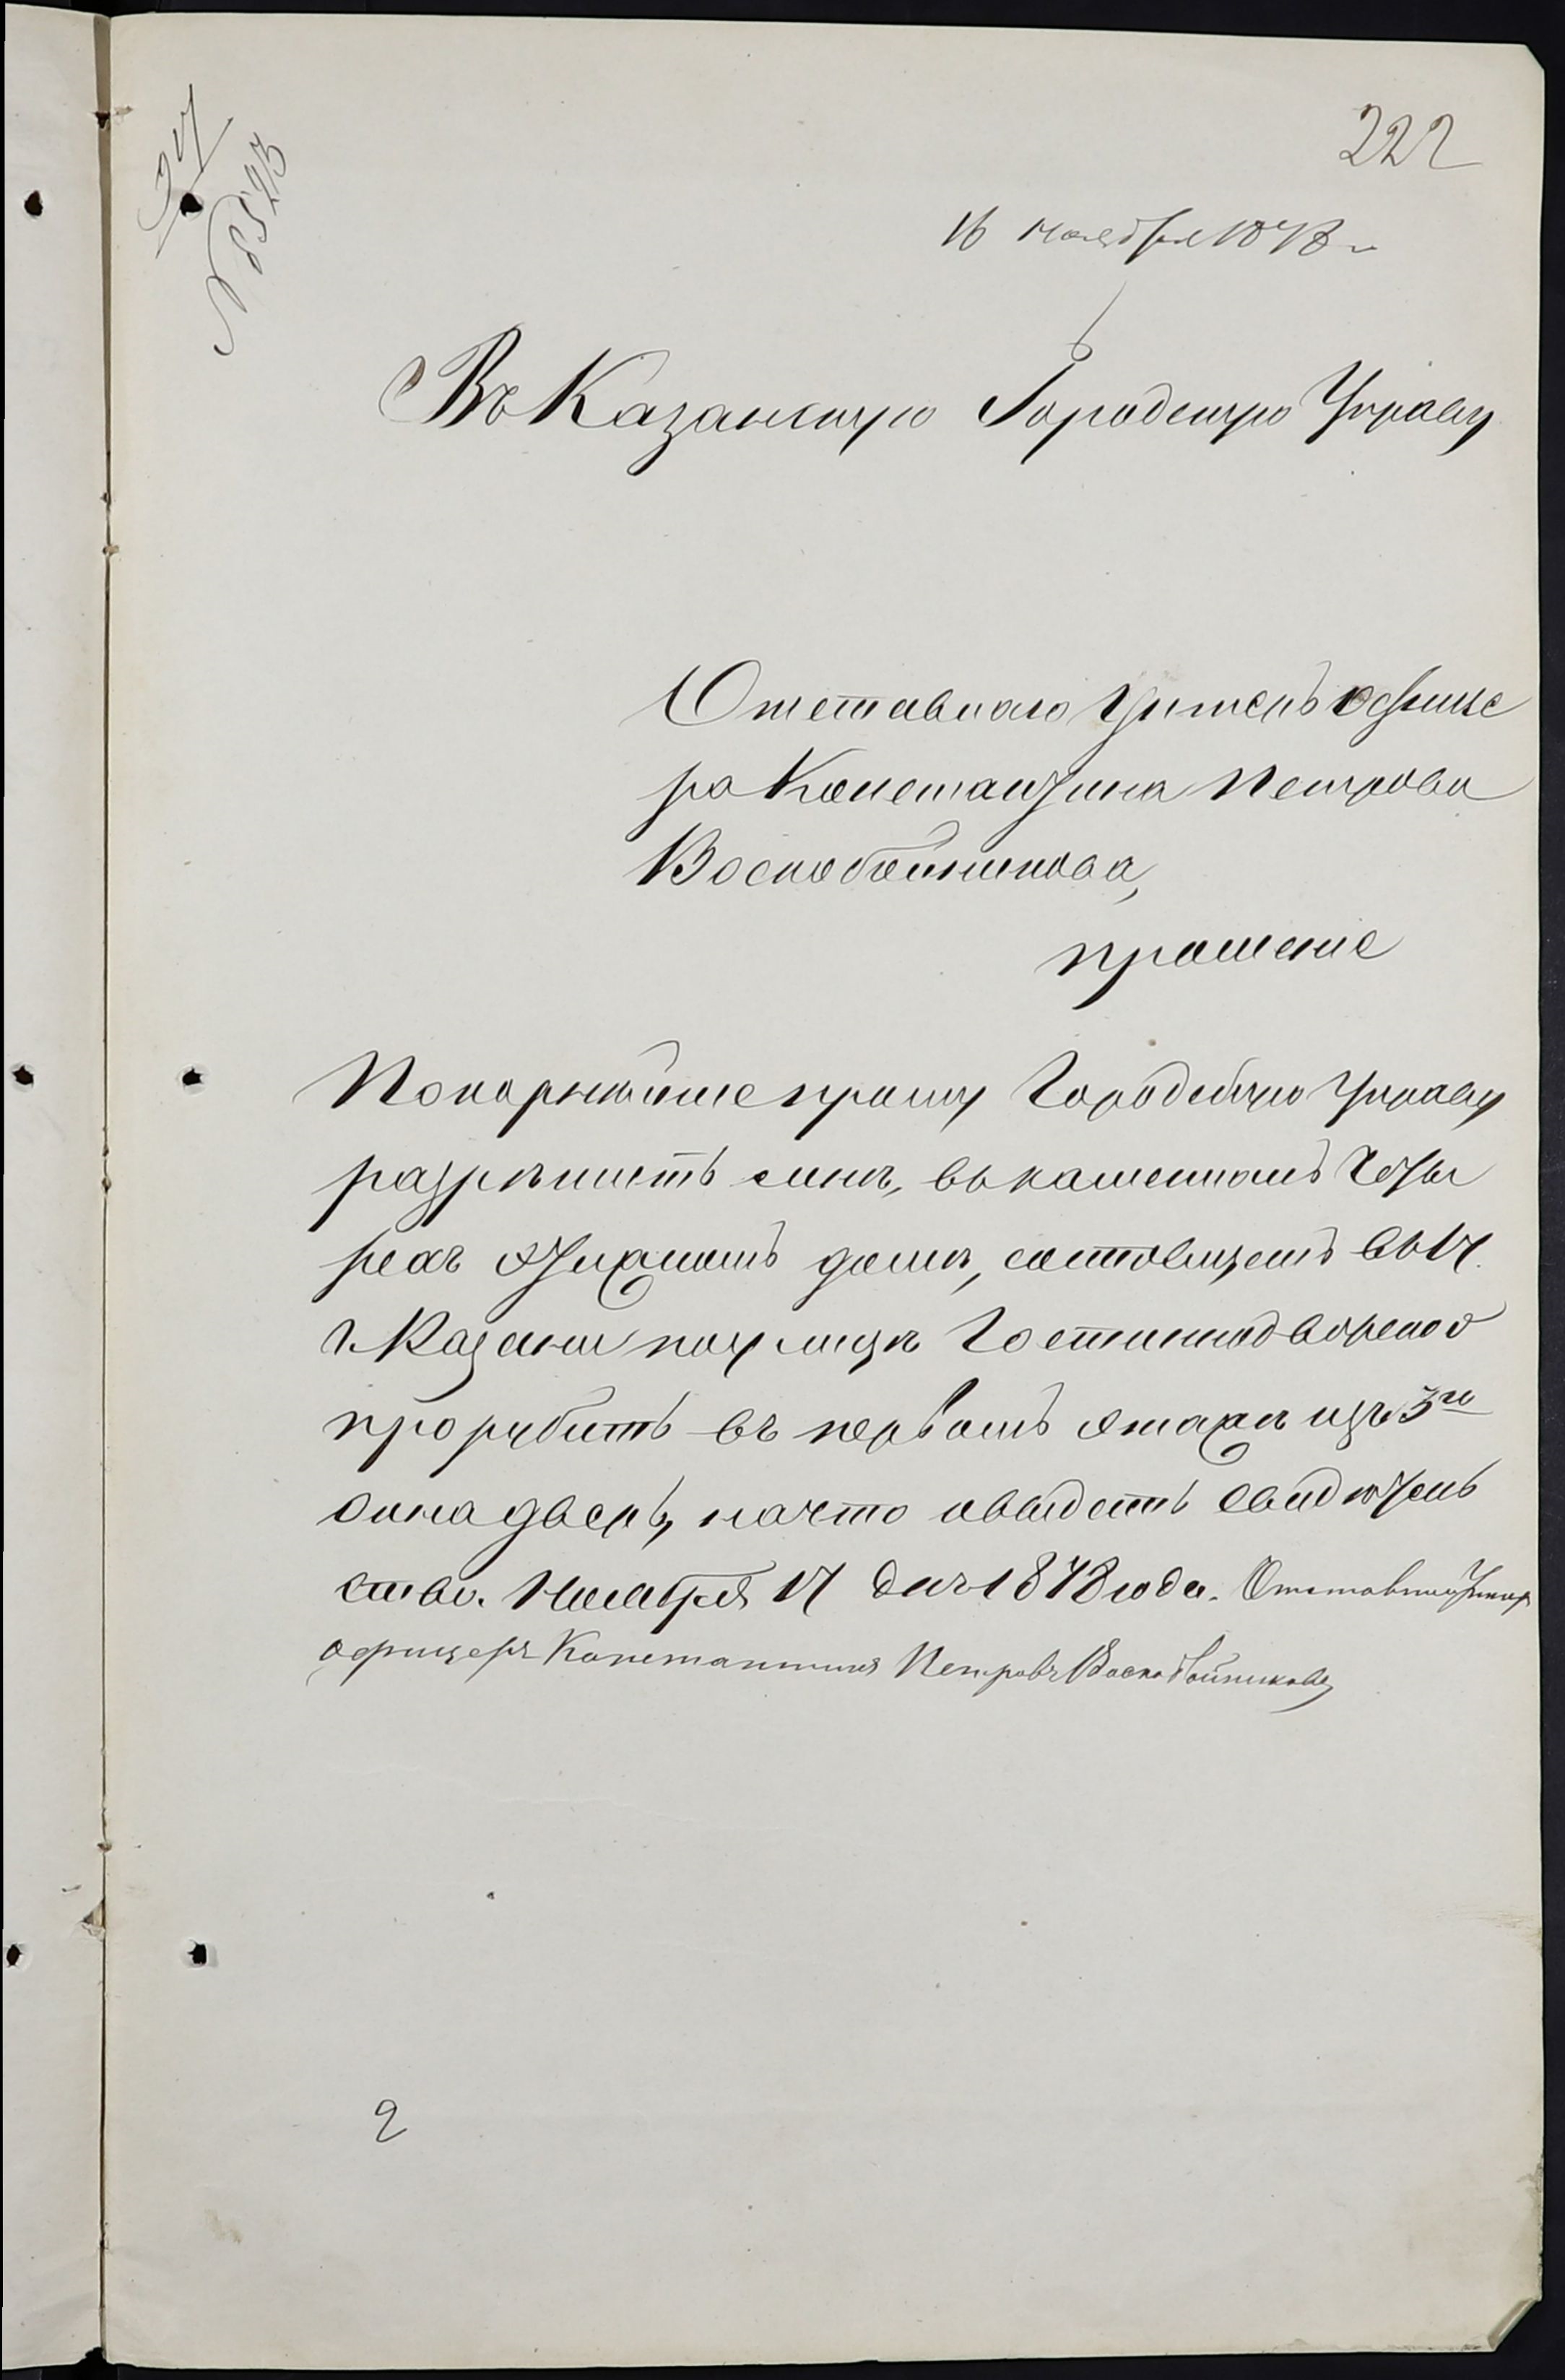 222
№ 8523
16 ноября 1878 г
Въ Казанскую Городскую Управу
Отставного Унтеръ офице
ра Константина Петрова
Воскобойникова,
прошение
Покорнѣйше прошу Городскую Управу
разрѣшить мнѣ, въ каменномъ Четы
рехъ этажномъ домѣ, состоящемъ въ 1 Ч.
г. Казани по улицѣ Гостиннодворской
прорубить въ первомъ этажѣ изъ 3го
окна дверь, на что и выдать свидѣтель
ство. Ноября 17 дня 1878 года. Отставной Унтер
офицеръ Константинъ Петровъ Воскобойниковъ
2